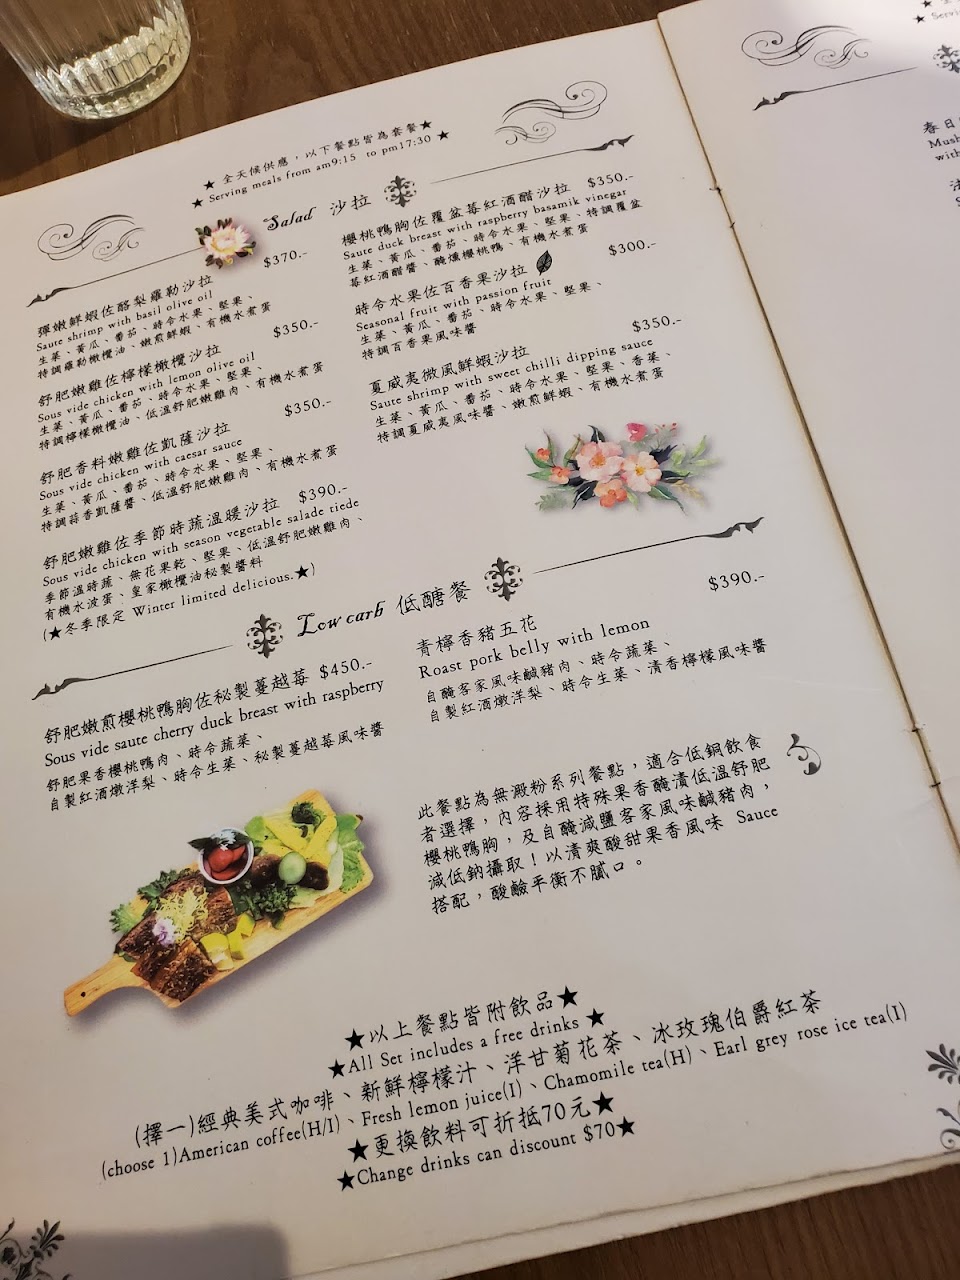 ★ 全天候供應，以下餐點皆為套餐★
★ Serving meals from am9:15 to pm17:30 ★
Salad 沙拉
$370.-
彈嫩鮮蝦佐酪梨羅勒沙拉
Saute shrimp with basil olive oil
生菜、黃瓜、番茄、時令水果、堅果、
特調羅勒橄欖油、嫩煎鮮蝦、有機水煮蛋
$350.-
舒肥嫩雞佐檸檬橄欖沙拉
Sous vide chicken with lemon olive oil
生菜、黃瓜、番茄、時令水果、堅果、
特調檸檬橄欖油、低溫舒肥嫩雞肉、有機水煮蛋
$350.-
舒肥香料嫩雞佐凱薩沙拉
Sous vide chicken with caesar sauce
生菜、黃瓜、番茄、時令水果、堅果、
特調蒜香凱薩醬、低溫舒肥嫩雞肉、有機水煮蛋
舒肥嫩雞佐季節時蔬溫暖沙拉 $390.-
Sous vide chicken with season vegetable salade tiede
季節溫時蔬、無花果乾、堅果、低溫舒肥嫩雞肉、
有機水波蛋、皇家橄欖油秘製醬料
(★冬季限定 Winter limited delicious.★)
櫻桃鴨胸佐覆盆莓紅酒醋沙拉 $350.-
Saute duck breast with raspberry basamik vinegar
生菜、黃瓜、番茄、時令水果、堅果、特調覆盆
莓紅酒醋醬、醃燻櫻桃鴨、有機水煮蛋
時令水果佐百香果沙拉 $300.-
Seasonal fruit with passion fruit
生菜、黃瓜、番茄、時令水果、堅果、
特調百香果風味醬
$350.-
夏威夷微風鮮蝦沙拉
Saute shrimp with sweet chilli dipping sauce
生菜、黃瓜、番茄、時令水果、堅果、香菜、
特調夏威夷風味醬、嫩煎鮮蝦、有機水煮蛋
Low carb 低醣餐
舒肥嫩煎櫻桃鴨胸佐秘製蔓越莓 $450.-
Sous vide saute cherry duck breast with raspberry
舒肥果香櫻桃鴨肉、時令蔬菜、
自製紅酒燉洋梨、時令生菜、秘製蔓越莓風味醬
$390.-
青檸香豬五花
Roast pork belly with lemon
自醃客家風味鹹豬肉、時令蔬菜、
自製紅酒燉洋梨、時令生菜、清香檸檬風味醬
此餐點為無澱粉系列餐點，適合低銅飲食
者選擇，內容採用特殊果香醃漬低溫舒肥
櫻桃鴨胸，及自醃減鹽客家風味鹹豬肉，
減低鈉攝取！以清爽酸甜果香風味 Sauce
搭配，酸鹼平衡不膩口。
★以上餐點皆附飲品★
★All Set includes a free drinks ★
(擇一)經典美式咖啡、新鮮檸檬汁、洋甘菊花茶、冰玫瑰伯爵紅茶
(choose 1)American coffee(H/I)、Fresh lemon juice(I)、Chamomile tea(H)、Earl grey rose ice tea(I)
★更換飲料可折抵70元★
★Change drinks can discount $70★
★ Servi
春日
Mush
with